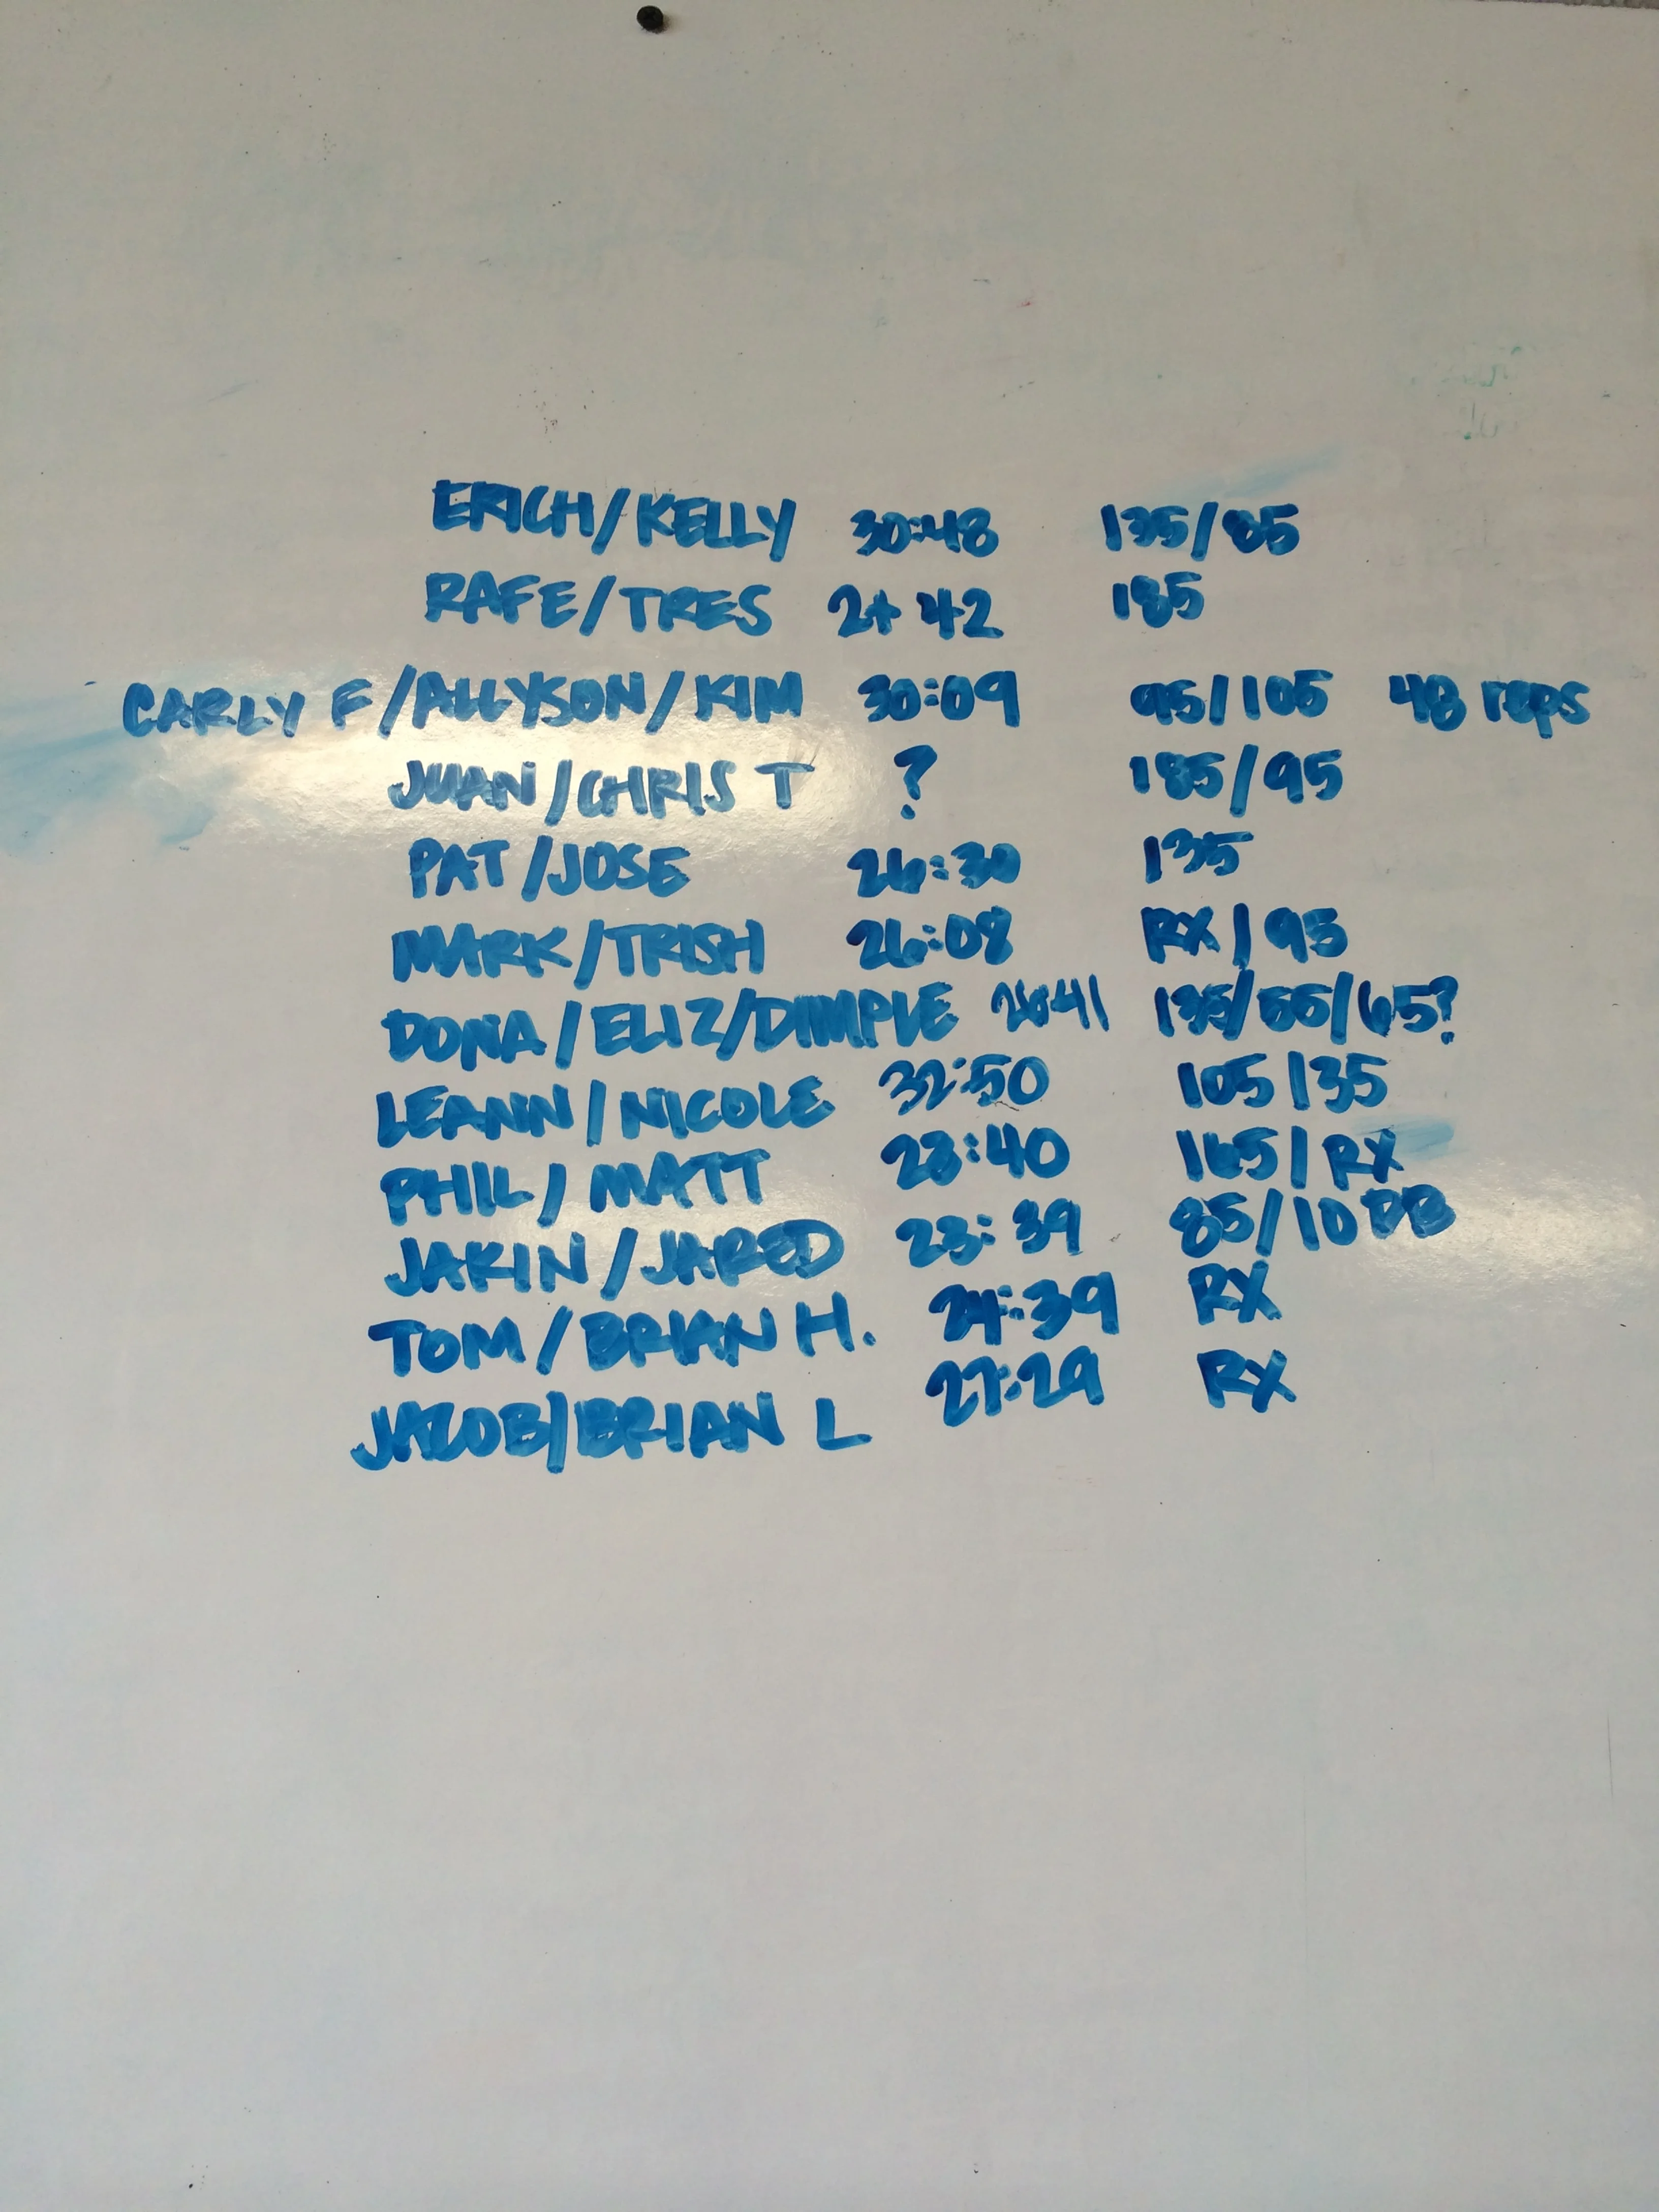 ERICH/KELLY 30:48 135/85
RAFE/TRES 2+42 185
CARLY F/ALLYSON/KIM 30:09 95/105 48 reps
JUAN/CHRIS T ? 185/95
PAT/JOSE 26:30 135
MARK/TRISH 26:08 RX/95
DONA/ELIZ/DIMPLE 135/55/65?
LEANN/NICOLE 32:50 105/135
PHIL/MATT 28:40 165/RX
JAKIN/JARED 23:39 85/10 DB
TOM/BRIAN H. 24:39 RX
JACOB/BRIAN L 27:29 RX